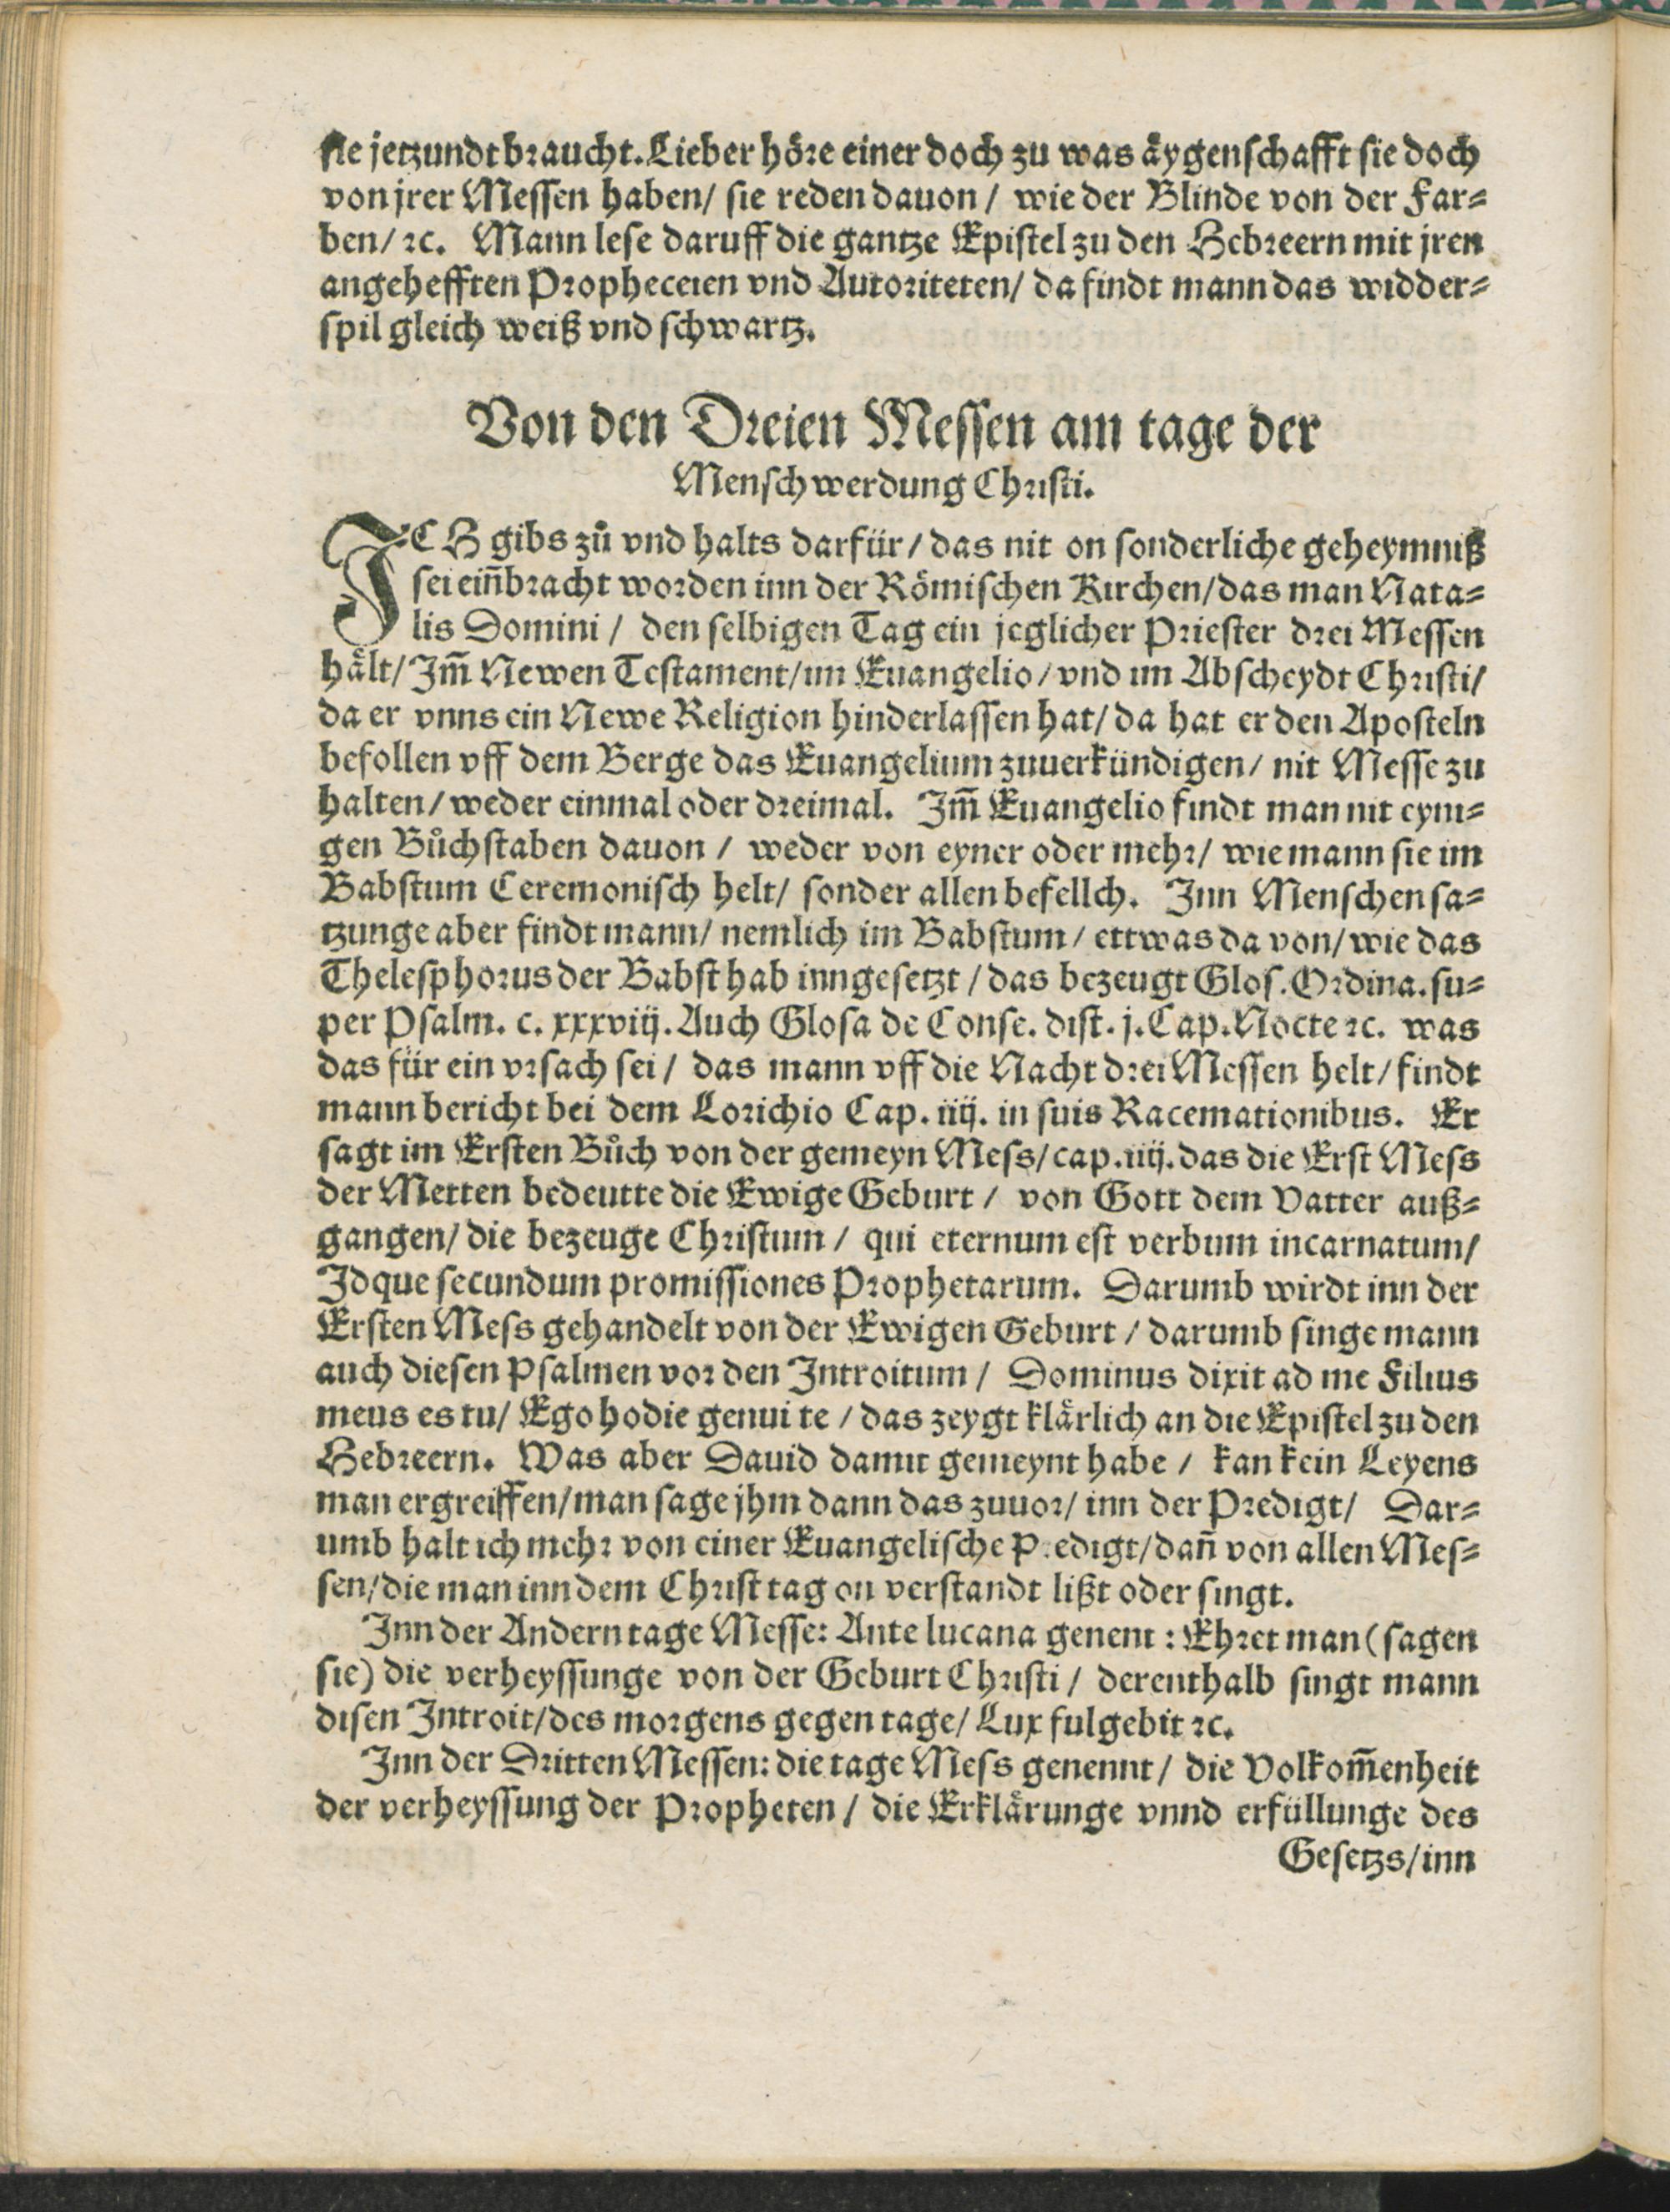 sie jetzundt braucht. Lieber höre einer doch zu was äygenschafft sie doch
von jrer Messen haben/ sie reden dauon / wie der Blinde von der Far⸗
ben/ ꝛc. Mann lese daruff die gantze Epistel zu den Hebreern mit jren
angehefften Propheceien vnd Autoriteten/ da findt mann das widder⸗
spil gleich weiß vnd schwartz.
Von den Dreien Messen am tage der
Menschwerdung Christi.
ICH gibs zů vnd halts darfür / das nit on sonderliche geheymniß
sei eiñbracht worden inn der Römischen Kirchen/das man Nata⸗
lis Domini / den selbigen Tag ein jeglicher Priester drei Messen
hält/ Im̃ Newen Testament/im Euangelio / vnd im Abscheydt Christi/
da er vnns ein Newe Religion hinderlassen hat/ da hat er den Aposteln
befollen vff dem Berge das Euangelium zuuerkündigen/ nit Messe zu
halten/ weder einmal oder dreimal. Im̃ Euangelio findt man nit eyni⸗
gen Bůchstaben dauon / weder von eyner oder mehr/ wie mann sie im
Babstum Ceremonisch helt/ sonder allen befellch. Inn Menschen sa⸗
tzunge aber findt mann/ nemlich im Babstum / ettwas da von/ wie das
Thelesphorus der Babst hab inngesetzt / das bezeugt Glos. Ordina. su⸗
per Psalm. c. xxxviij. Auch Glosa de Conse. dist. j. Cap. Nocte ꝛc. was
das für ein vrsach sei / das mann vff die Nacht drei Messen helt/ findt
mann bericht bei dem Lorichio Cap. iiij. in suis Racemationibus. Er
sagt im Ersten Bůch von der gemeyn Mess/ cap. iiij. das die Erst Mess
der Metten bedeutte die Ewige Geburt / von Gott dem Vatter auß⸗
gangen/ die bezeuge Christum / qui eternum est verbum incarnatum/
Idque secundum promissiones Prophetarum. Darumb wirdt inn der
Ersten Mess gehandelt von der Ewigen Geburt / darumb singe mann
auch diesen Psalmen vor den Introitum / Dominus dixit ad me Filius
meus es tu/ Ego hodie genui te / das zeygt klärlich an die Epistel zu den
Hebreern. Was aber Dauid damit gemeynt habe / kan kein Leyens
man ergreiffen/man sage jhm dann das zuuor/ inn der Predigt/ Dar⸗
umb halt ich mehr von einer Euangelische Predigt/dañ von allen Mes⸗
sen/die man inn dem Christ tag on verstandt lißt oder singt.
Inn der Andern tage Messe: Ante lucana genent : Ehret man (sagen
sie) die verheyssunge von der Geburt Christi / derenthalb singt mann
disen Introit/des morgens gegen tage/ Lux fulgebit ꝛc.
Inn der Dritten Messen: die tage Mess genennt / die Volkom̃enheit
der verheyssung der Propheten / die Erklärunge vnnd erfüllunge des
Gesetzs/inn